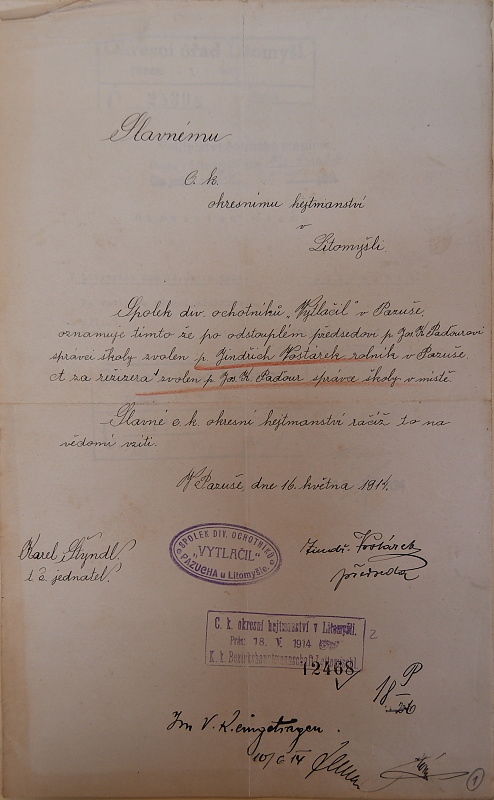 Slavnému
c. k.
okresnímu hejtmanství
v
Litomyšli.
Spolek div. ochotníků „Vytlačil" v Pazuše,
oznamuje tímto že po odstouplém předsedovi p. Jos. K. Paďourovi
správci školy zvolen p. Jindřich Vostárek rolník v Pazuše.
A za režizera zvolen p. Jos. K. Paďour správce školy v místě.
Slavné c. k. okresní hejtmanství račiž to na
vědomí vzíti.
V Pazuše, dne 16. května 1914.
Karel Štýndl
t. č. jednatel.
SPOLEK DIV. OCHOTNÍKŮ
„VYTLAČIL"
PAZUCHA u Litomyšle.
Jindř. Vostárek
předseda
C. k. okresní hejtmanství v Litomyšli.
Präs: 18. V. 1914
K. k. Bezirkshauptmannschaft Leitomischl
12468
P
18
Im V. K. eingetragen.
10/6 14
1